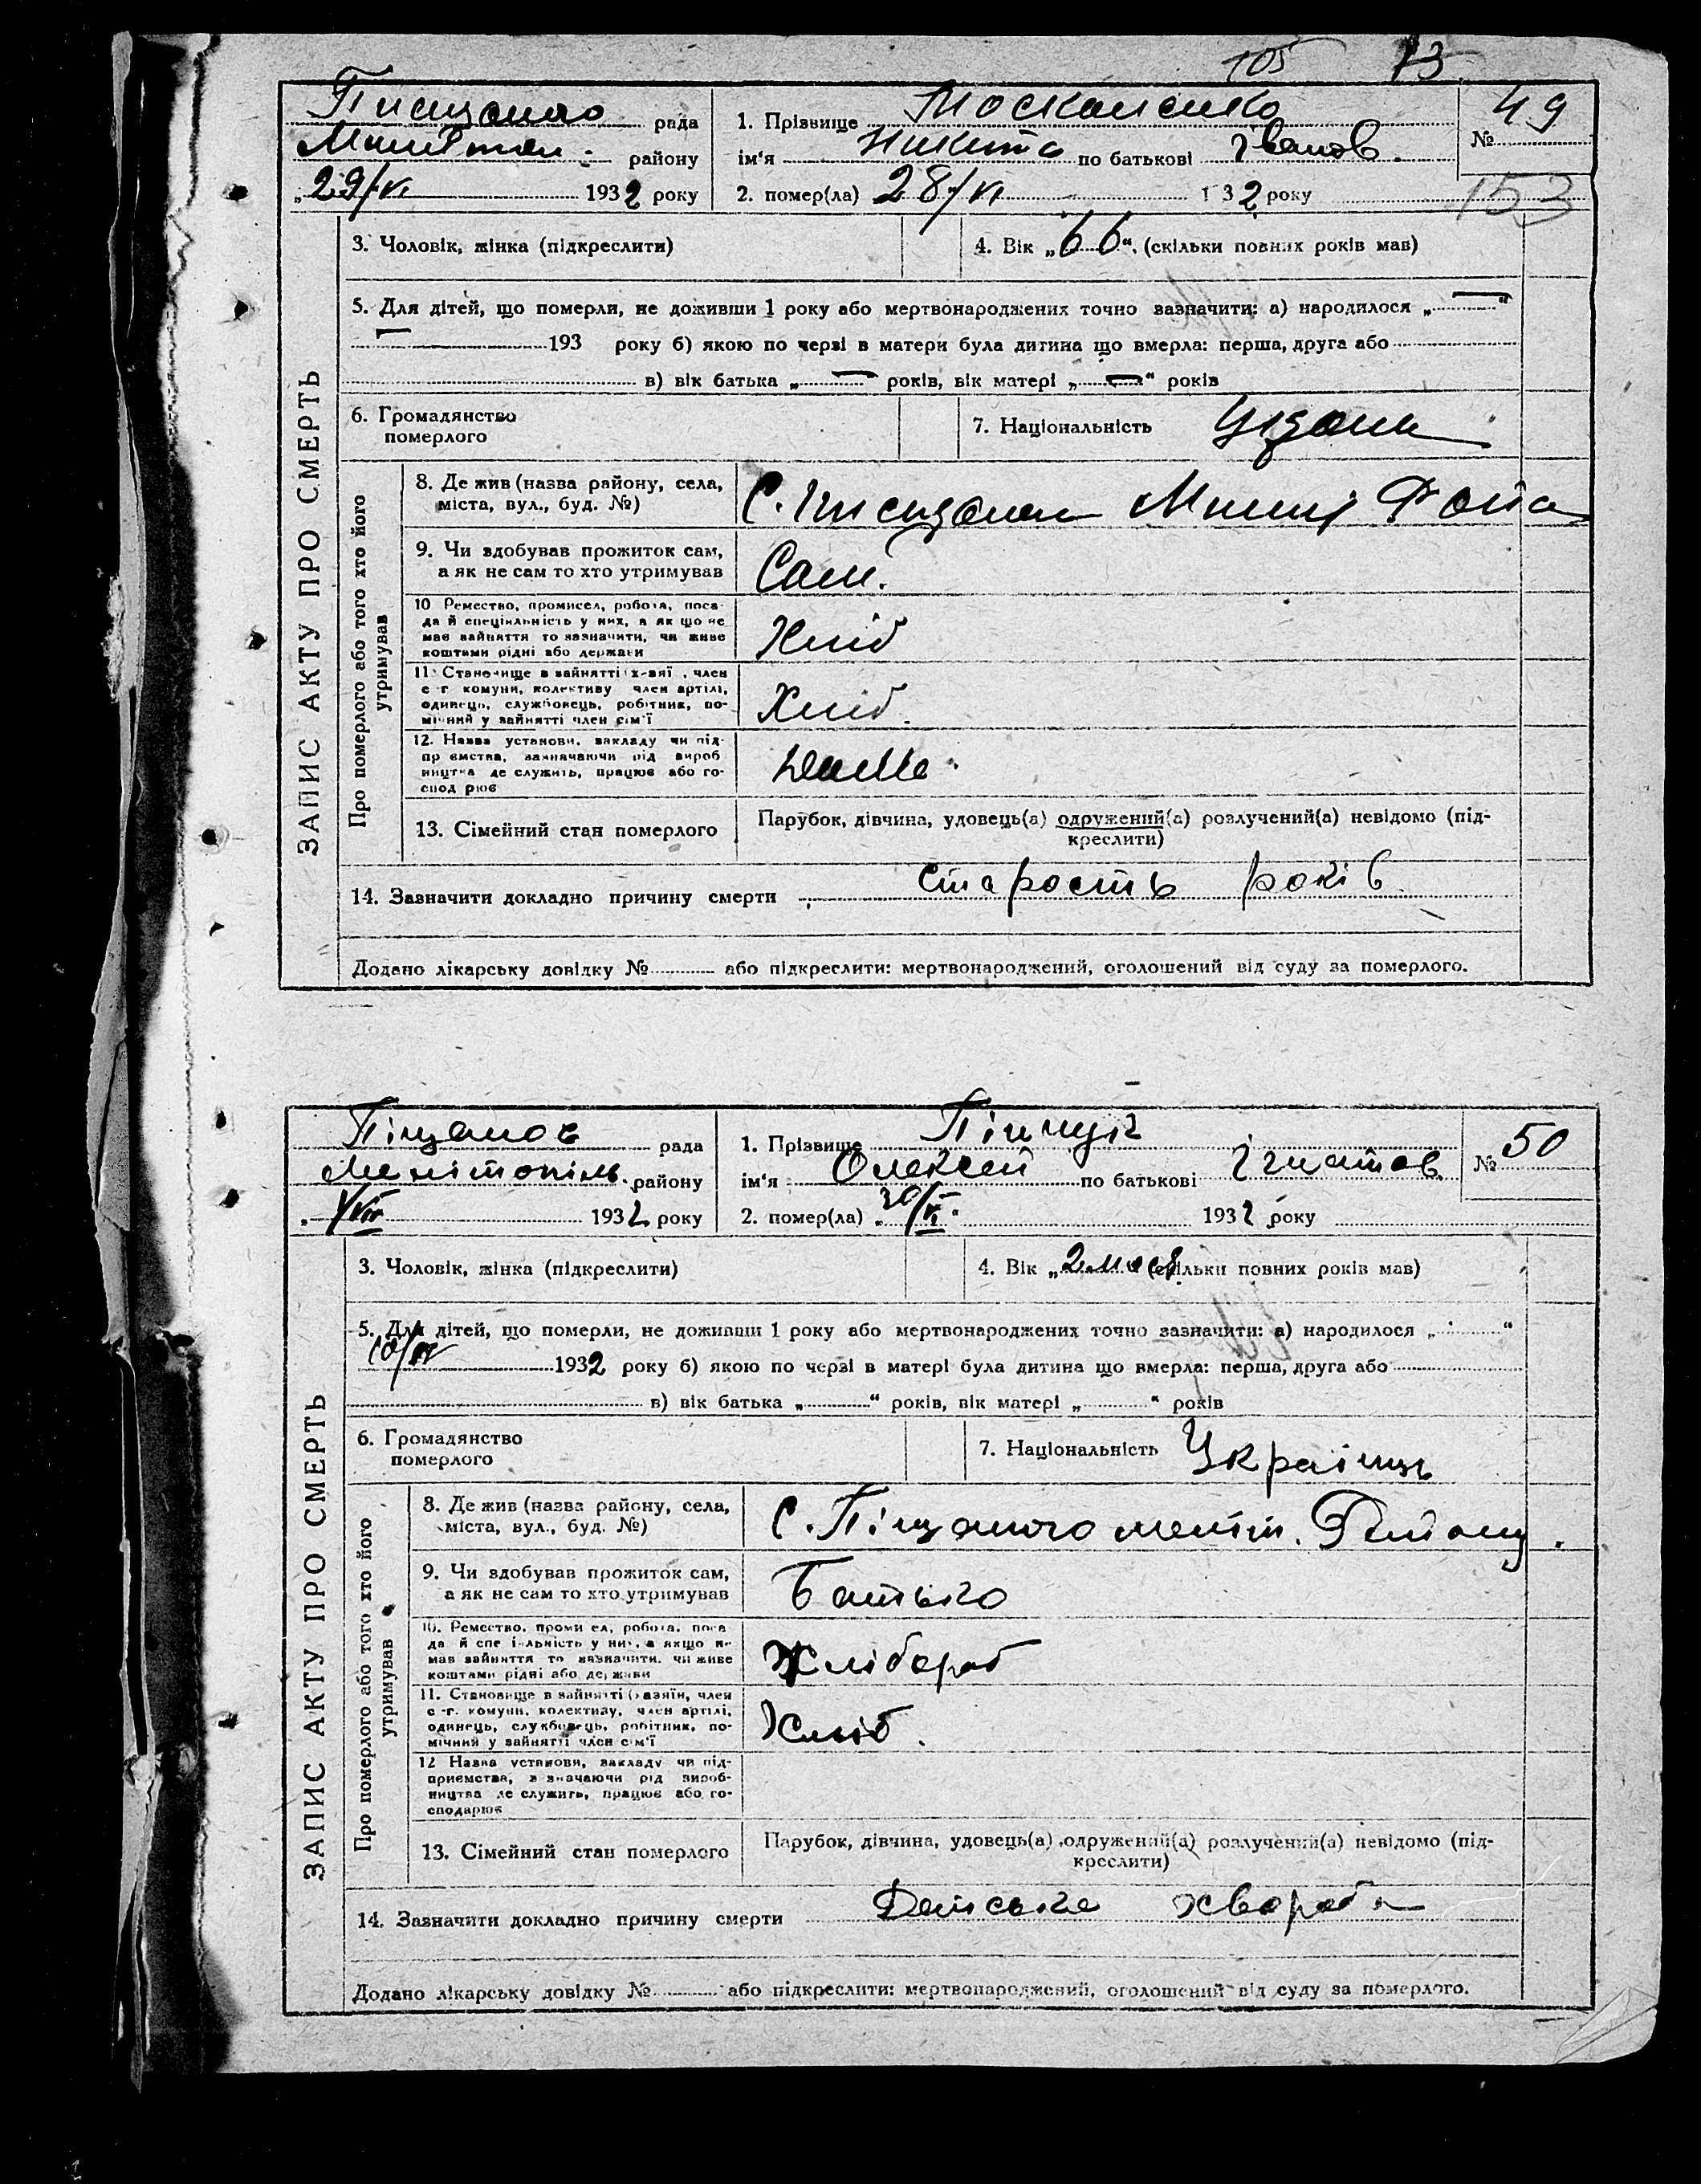 105 73
Пищаного рада
Мелітоп. району
„29/VI 1932 року
1. Прізвище Москаленко
ім'я Никита по батькові Іванов.
2. помер(ла) 28/VI 1932 року
№ 49
153
ЗАПИС АКТУ ПРО СМЕРТЬ
3. Чоловік, жінка (підкреслити)
4. Вік „66“ (скільки повних років мав)
5. Для дітей, що померли, не доживши 1 року або мертвонароджених точно зазначити: а) народилося „—“
— 193 року б) якою по черзі в матери була дитина що вмерла: перша, друга або
в) вік батька „—“ років, вік матері „—“ років
6. Громадянство
померлого
7. Національність
Про померлого або того хто його
утримував
8. Де жив (назва району, села,
міста, вул., буд. №)
С.
9. Чи здобував прожиток сам,
а як не сам то хто утримував
Сам.
10 Ремество, промисел, робота, поса-
да й спеціяльність у них, а як що не
має зайняття то зазначити, чи живе
коштами рідні або держави
Хліб
11 Становище в зайнятті (х-зяї , член
с -г комуни, колективу член артілі,
одинець, службовець, робітник, по-
мічний у зайнятті член сім'ї
Хліб.
12. Назва установи, закладу чи під-
пр ємства, зазначаючи рід вироб
ництва де служить, працює або го-
спод рює
13. Сімейний стан померлого
Парубок, дівчина, удовець(а) одружений(а) розлучений(а) невідомо (під-
креслити)
14. Зазначити докладно причину смерти старость років
Додано лікарську довідку № або підкреслити: мертвонароджений, оголошений від суду за померлого.
Піщанов рада
Мелітопіль. району
„1/VII 1932 року
1. Прізвище Пінчук
ім'я Олексей по батькові Ігнатов.
2. помер(ла) „30/VI. 1932 року
№ 50
ЗАПИС АКТУ ПРО СМЕРТЬ
3. Чоловік, жінка (підкреслити)
4. Вік „2 мос (скільки повних років мав)
5. Для дітей, що померли, не доживши 1 року або мертвонароджених точно зазначити: а) народилося „ “
10/IV 1932 року б) якою по черзі в матері була дитина що вмерла: перша, друга або
в) вік батька „ “ років, вік матері „ “ років
6. Громадянство
померлого
7. Національність Українць
Про померлого або того хто його
утримував
8. Де жив (назва району, села,
міста, вул., буд. №)
С. Піщаного меліт. Району.
9. Чи здобував прожиток сам,
а як не сам то хто утримував
Батько
10. Ремество, проми ел, робота, поса
да й спе і-льність у них, а якщо не
має зайняття то зазначити, чи живе
коштами рідні або держави
Хлібороб
11. Становище в зайнятті (хазяїн, член
с -г. комуни, колективу, член артілі,
одинець, службовець, робітник, по-
мічний у зайнятті член сім'ї
Хліб.
12 Назва установи, закладу чи під-
приємства, з значаючи рід вироб-
ництва де служить, працює або го-
сподарює
13. Сімейний стан померлого
Парубок, дівчина, удовець(а) одружений(а) розлучений(а) невідомо (під-
креслити)
14. Зазначити докладно причину смерти Детська хвороба
Додано лікарську довідку № або підкреслити: мертвонароджений, оголошений від суду за померлого.